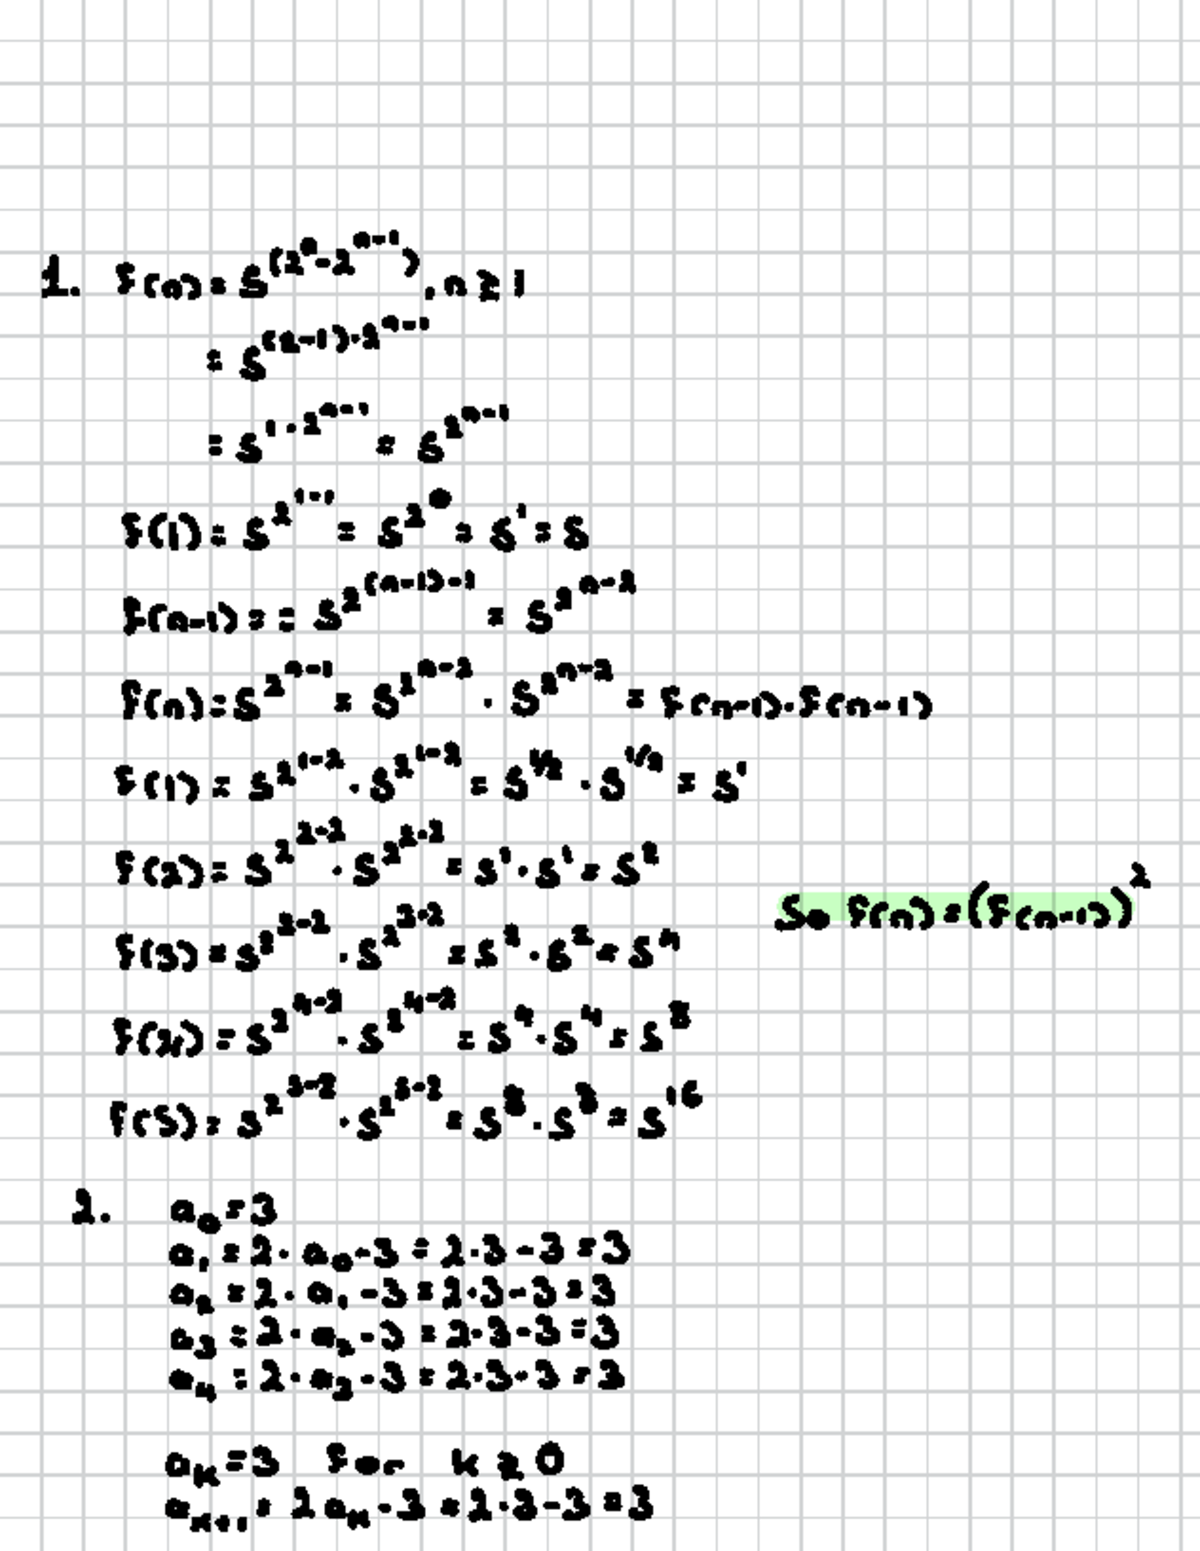 1. f(n) = 5^(2^n - 2^(n-1)), n ≥ 1
= 5^((2-1)·2^(n-1))
= 5^(1·2^(n-1)) = 5^(2^(n-1))
f(1) = 5^(2^(1-1)) = 5^(2^0) = 5^1 = 5
f(n-1) = = 5^(2^((n-1)-1)) = 5^(2^(n-2))
f(n) = 5^(2^(n-1)) = 5^(2^(n-2)) · 5^(2^(n-2)) = f(n-1)·f(n-1)
f(1) = 5^(2^(1-2)) · 5^(2^(1-2)) = 5^(1/2) · 5^(1/2) = 5^1
f(2) = 5^(2^(2-2)) · 5^(2^(2-2)) = 5^1 · 5^1 = 5^2
So f(n) = (f(n-1))^2
f(3) = 5^(2^(3-2)) · 5^(2^(3-2)) = 5^2 · 5^2 = 5^4
f(4) = 5^(2^(4-2)) · 5^(2^(4-2)) = 5^4 · 5^4 = 5^8
f(5) = 5^(2^(5-2)) · 5^(2^(5-2)) = 5^8 · 5^8 = 5^16
2. a_0 = 3
a_1 = 2 · a_0 - 3 = 2·3 - 3 = 3
a_2 = 2 · a_1 - 3 = 2·3 - 3 = 3
a_3 = 2 · a_2 - 3 = 2·3 - 3 = 3
a_4 = 2 · a_3 - 3 = 2·3 - 3 = 3
a_k = 3 for k ≥ 0
a_(k+1) = 2a_k - 3 = 2·3 - 3 = 3